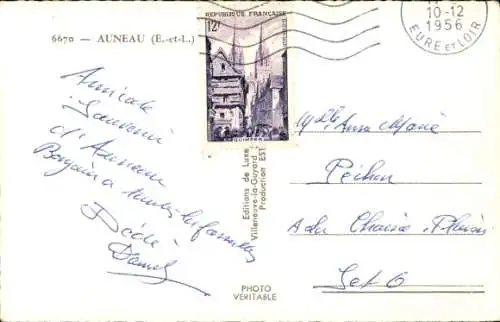 6670 — AUNEAU (E.-et-L.)
REPUBLIQUE FRANÇAISE
12F
POSTES
QUIMPER
10-12
1956
EURE et LOIR
Amicale
Souvenir
d'Auneau
Bonjour a toute la famille
Dédé
Daniel
Editions de Luxe
Villeneuve-la-Guyard
Production EST
PHOTO
VERITABLE
Mlle Anna Marie
Péchou
A La Chaise
L et O